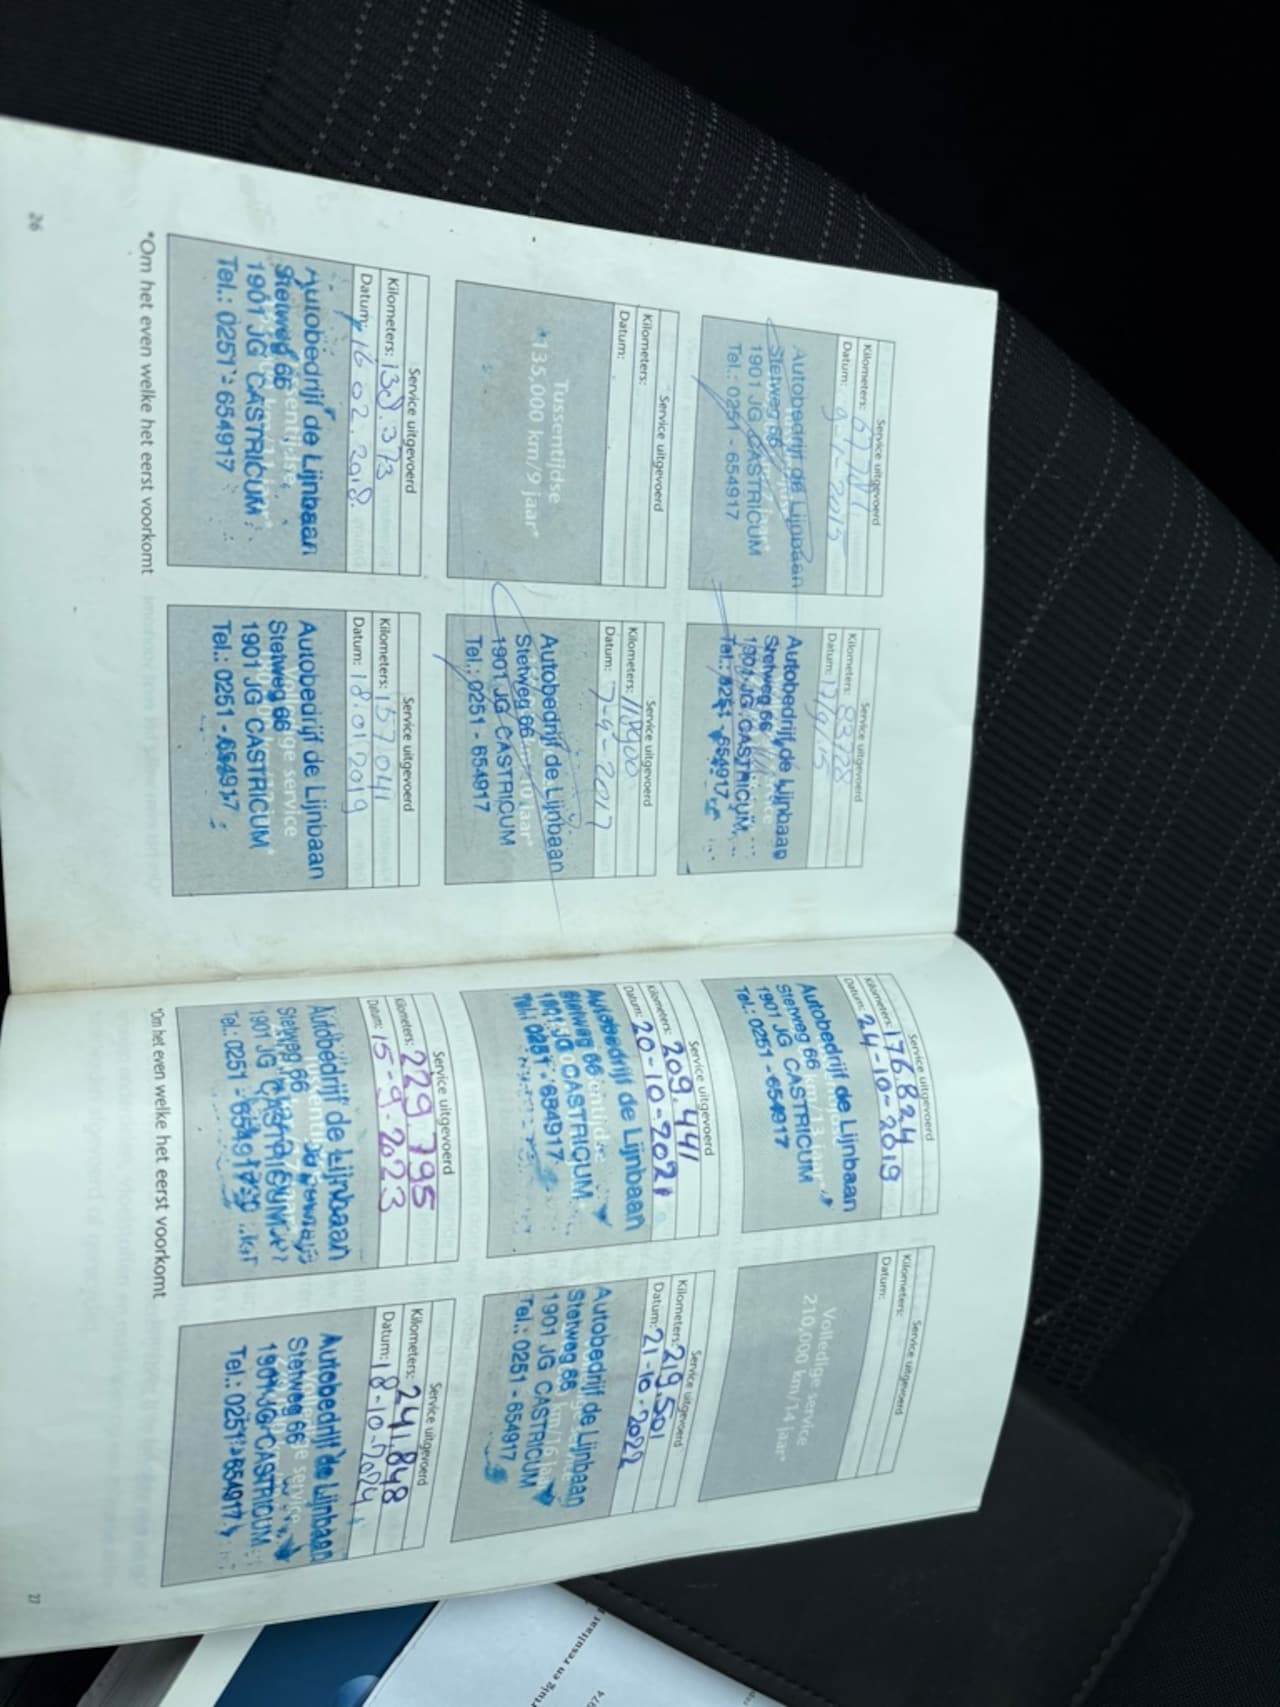 Service uitgevoerd
Kilometers:
Datum: 9-1-2015
Autobedrijf de Lijnbaan
Stetweg 66
1901 JG CASTRICUM
Tel.: 0251 - 654917
Service uitgevoerd
Kilometers: 83728
Datum:
Autobedrijf de Lijnbaan
Stetweg 66
1901 JG CASTRICUM
Tel.: 0251 - 654917
Service uitgevoerd
Kilometers:
Datum:
Tussentijdse
*135,000 km/9 jaar*
Service uitgevoerd
Kilometers: 118900
Datum: 7-4-2017
Autobedrijf de Lijnbaan
Stetweg 66
1901 JG CASTRICUM
Tel.: 0251 - 654917
Service uitgevoerd
Kilometers: 138.373
Datum: 16.02.2018.
Autobedrijf de Lijnbaan
Stetweg 66
1901 JG CASTRICUM
Tel.: 0251 - 654917
Service uitgevoerd
Kilometers: 157.041
Datum: 18.01.2019
Autobedrijf de Lijnbaan
Stetweg 66
1901 JG CASTRICUM
Tel.: 0251 - 654917
*Om het even welke het eerst voorkomt
26
Service uitgevoerd
Kilometers: 176.824
Datum: 24-10-2019
Autobedrijf de Lijnbaan
Stetweg 66
1901 JG CASTRICUM
Tel.: 0251 - 654917
Service uitgevoerd
Kilometers:
Datum:
Volledige service
210,000 km/14 jaar*
Service uitgevoerd
Kilometers: 209.441
Datum: 20-10-2021
Autobedrijf de Lijnbaan
Stetweg 66
1901 JG CASTRICUM
Tel.: 0251 - 654917
Service uitgevoerd
Kilometers: 219.501
Datum: 21-10-2022
Autobedrijf de Lijnbaan
Stetweg 66
1901 JG CASTRICUM
Tel.: 0251 - 654917
Service uitgevoerd
Kilometers: 229.795
Datum: 15-9-2023
Autobedrijf de Lijnbaan
Stetweg 66
1901 JG CASTRICUM
Tel.: 0251 - 654917
Service uitgevoerd
Kilometers: 241.848
Datum: 18-10-2024
Autobedrijf de Lijnbaan
Stetweg 66
1901 JG CASTRICUM
Tel.: 0251 - 654917
*Om het even welke het eerst voorkomt
27
en resultaar